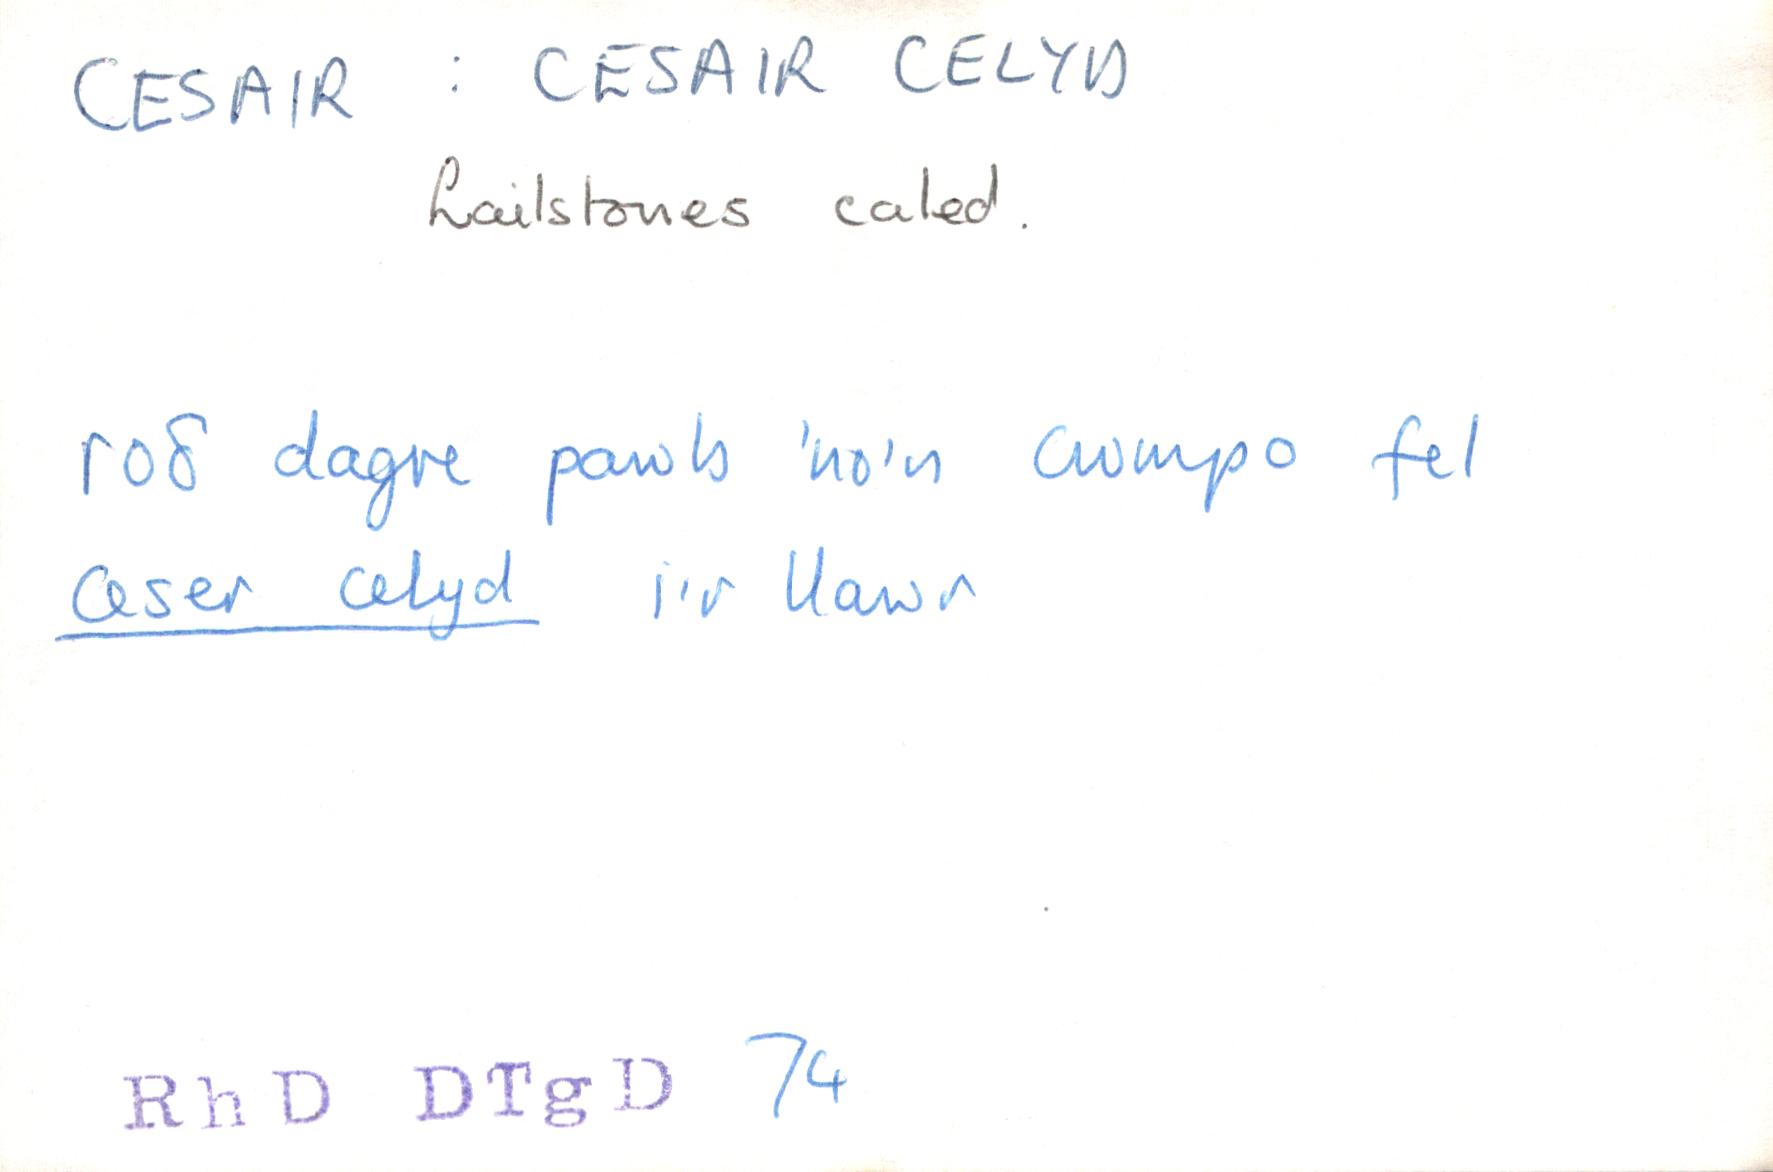 CESAIR : CESAIR CELYD
hailstones caled.
roδ dagre pawb 'no'n cwmpo fel
ceser celyd i'r llawr
RhD DTgD 74